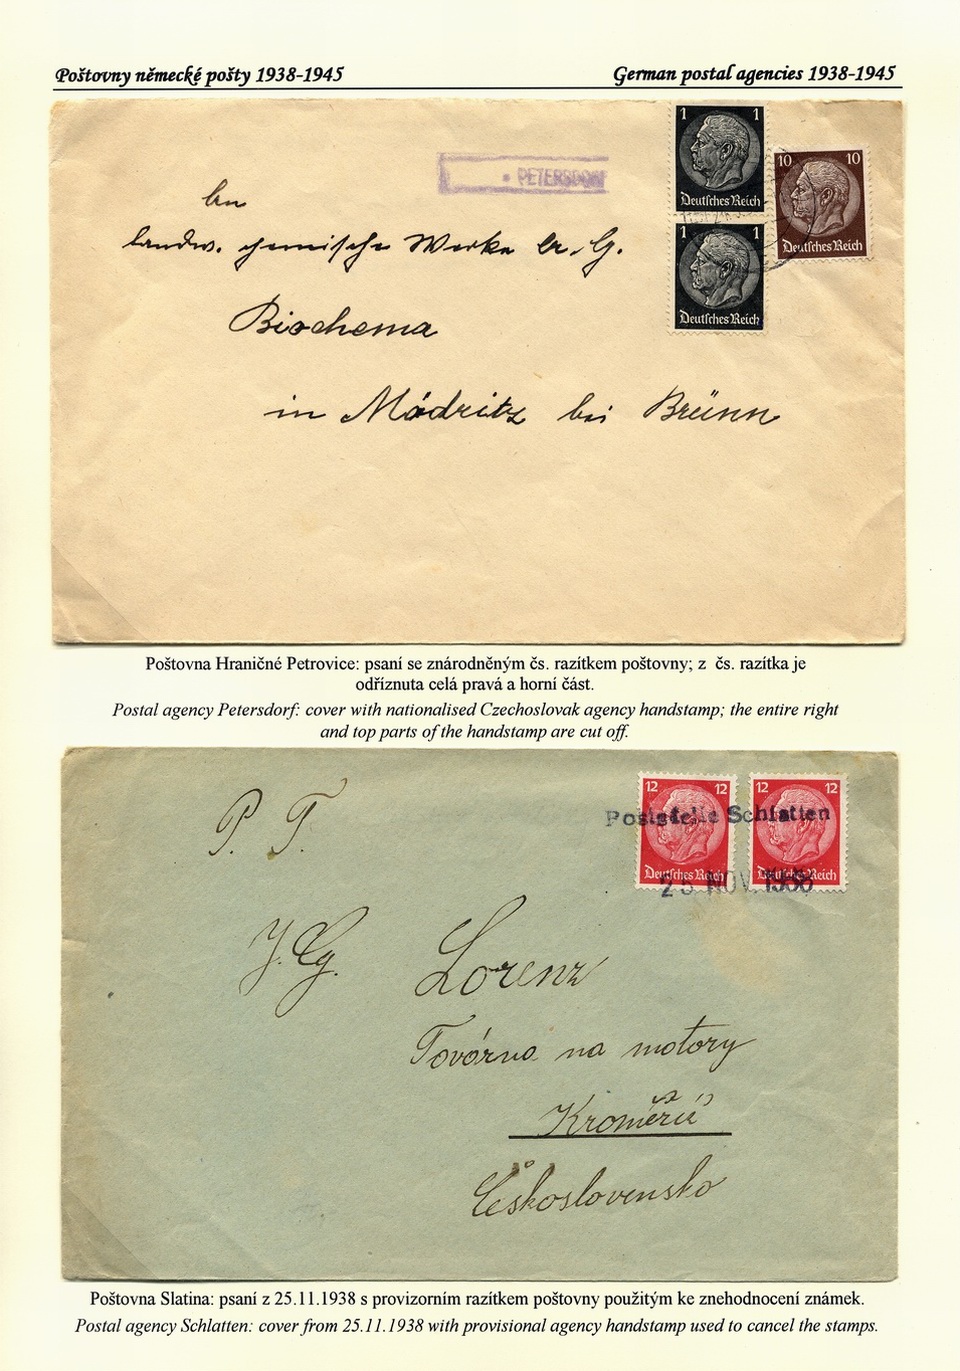 Poštovny německé pošty 1938-1945
German postal agencies 1938-1945
PETERSDORF
1 1
Deutsches Reich
10 10
Deutsches Reich
1 1
Deutsches Reich
An
landw. chemische Werke A. G.
Biochema
in Mödritz bei Brünn
Poštovna Hraničné Petrovice: psaní se znárodněným čs. razítkem poštovny; z čs. razítka je
odříznuta celá pravá a horní část.
Postal agency Petersdorf: cover with nationalised Czechoslovak agency handstamp; the entire right
and top parts of the handstamp are cut off.
12 12
Deutsches Reich
12 12
Deutsches Reich
Poststelle Schlatten
25. NOV. 1938
P. T.
J. G. Lorenz
Továrna na motory
Kroměříž
Československo
Poštovna Slatina: psaní z 25.11.1938 s provizorním razítkem poštovny použitým ke znehodnocení známek.
Postal agency Schlatten: cover from 25.11.1938 with provisional agency handstamp used to cancel the stamps.